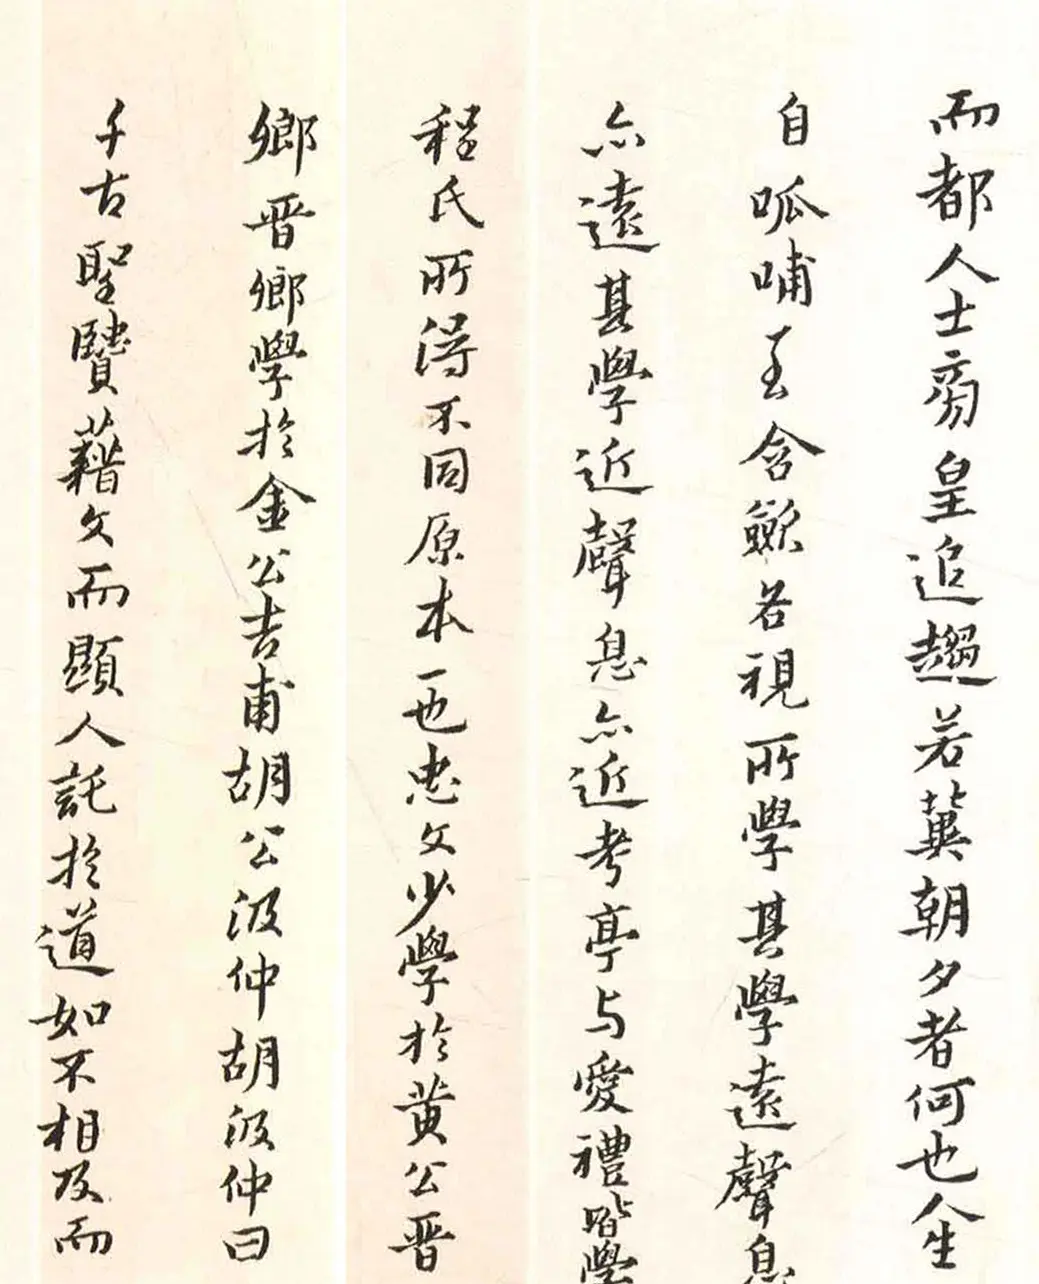 而都人士旁皇追趨若冀朝夕者何也人生
自呱哺至含歛各視所學其學遠聲息
亦遠其學近聲息亦近考亭与愛禮皆學
程氏所得不同原本一也忠文少學於黄公晋
鄉晋鄉學於金公吉甫胡公汲仲胡汲仲曰
千古聖賢藉文而顯人託於道如不相及而